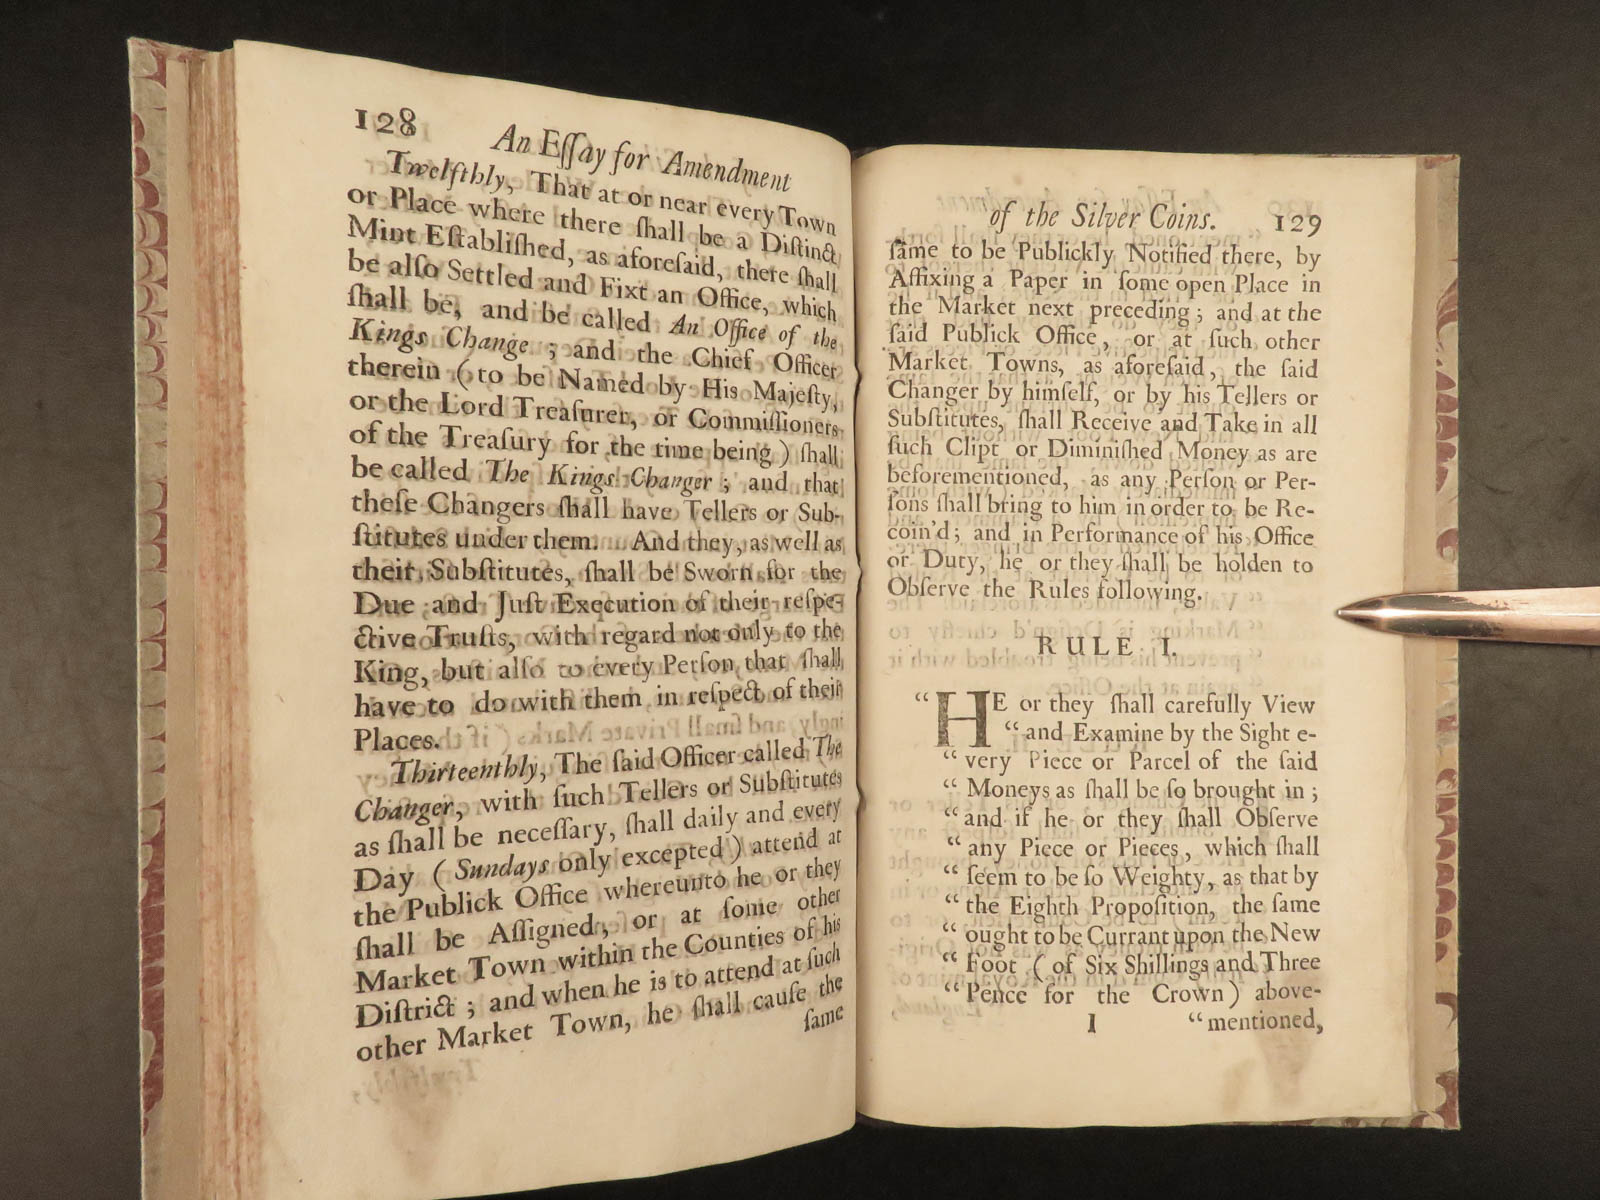 128
An Eſſay for Amendment
Twelfthly, That at or near every Town
or Place where there ſhall be a Diſtinct
Mint Eſtabliſhed, as aforeſaid, there ſhall
be alſo Settled and Fixt an Office, which
ſhall be, and be called An Office of the
Kings Change ; and the Chief Officer
therein ( to be Named by His Majeſty,
or the Lord Treaſurer, or Commiſſioners
of the Treaſury for the time being ) ſhall
be called The Kings Changer ; and that
theſe Changers ſhall have Tellers or Sub-
ſtitutes under them. And they, as well as
their Subſtitutes, ſhall be Sworn for the
Due and Juſt Execution of their reſpe-
ctive Truſts, with regard not only to the
King, but alſo to every Perſon that ſhall
have to do with them in reſpect of their
Places.
Thirteenthly, The ſaid Officer called The
Changer, with ſuch Tellers or Subſtitutes
as ſhall be neceſſary, ſhall daily and every
Day ( Sundays only excepted ) attend at
the Publick Office whereunto he or they
ſhall be Aſſigned, or at ſome other
Market Town within the Counties of his
Diſtrict ; and when he is to attend at ſuch
other Market Town, he ſhall cauſe the
ſame
of the Silver Coins. 129
ſame to be Publickly Notified there, by
Affixing a Paper in ſome open Place in
the Market next preceding ; and at the
ſaid Publick Office, or at ſuch other
Market Towns, as aforeſaid, the ſaid
Changer by himſelf, or by his Tellers or
Subſtitutes, ſhall Receive and Take in all
ſuch Clipt or Diminiſhed Money as are
beforementioned, as any Perſon or Per-
ſons ſhall bring to him in order to be Re-
coin'd ; and in Performance of his Office
or Duty, he or they ſhall be holden to
Obſerve the Rules following.
RULE I.
“ HE or they ſhall carefully View
“ and Examine by the Sight e-
“ very Piece or Parcel of the ſaid
“ Moneys as ſhall be ſo brought in ;
“ and if he or they ſhall Obſerve
“ any Piece or Pieces, which ſhall
“ ſeem to be ſo Weighty, as that by
“ the Eighth Propoſition, the ſame
“ ought to be Currant upon the New
“ Foot ( of Six Shillings and Three
“ Pence for the Crown ) above-
I “ mentioned,